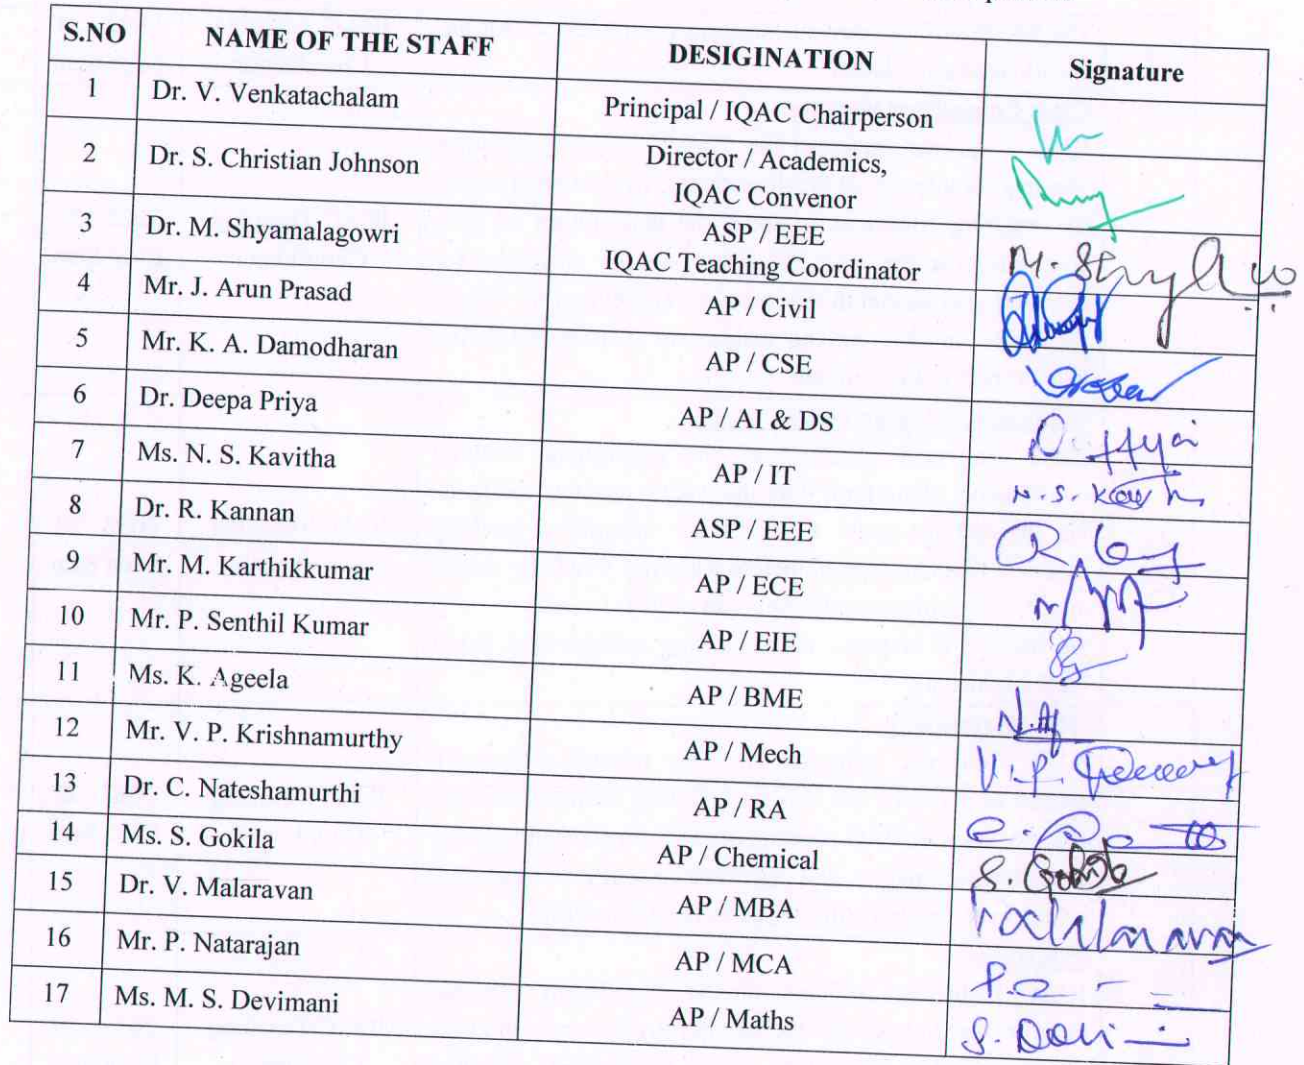 S.NO NAME OF THE STAFF DESIGINATION Signature
1 Dr. V. Venkatachalam Principal / IQAC Chairperson
2 Dr. S. Christian Johnson Director / Academics,
IQAC Convenor
3 Dr. M. Shyamalagowri ASP / EEE
IQAC Teaching Coordinator
4 Mr. J. Arun Prasad AP / Civil
5 Mr. K. A. Damodharan AP / CSE
6 Dr. Deepa Priya AP / AI & DS
7 Ms. N. S. Kavitha AP / IT N.S. Kavi
8 Dr. R. Kannan ASP / EEE
9 Mr. M. Karthikkumar AP / ECE
10 Mr. P. Senthil Kumar AP / EIE
11 Ms. K. Ageela AP / BME
12 Mr. V. P. Krishnamurthy AP / Mech V.P.
13 Dr. C. Nateshamurthi AP / RA
14 Ms. S. Gokila AP / Chemical S. Gokila
15 Dr. V. Malaravan AP / MBA
16 Mr. P. Natarajan AP / MCA
17 Ms. M. S. Devimani AP / Maths